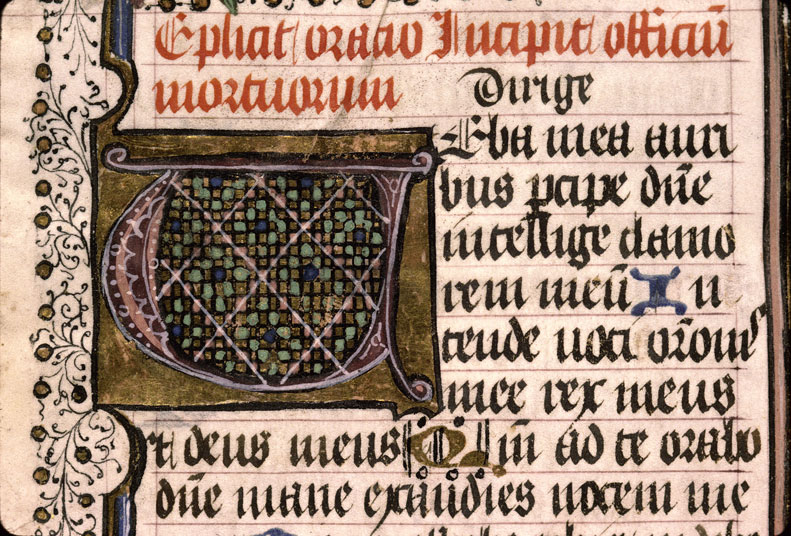 Eplicit oratio Incipit officiū
mortuorum Dirige
VErba mea auri
bus ꝑcipe dn̄e
intellige clamo
rem meū In
tende uoci or̄onis
mee rex meus
et deus meus Qm̄ ad te orabo
dn̄e mane exaudies uocem me